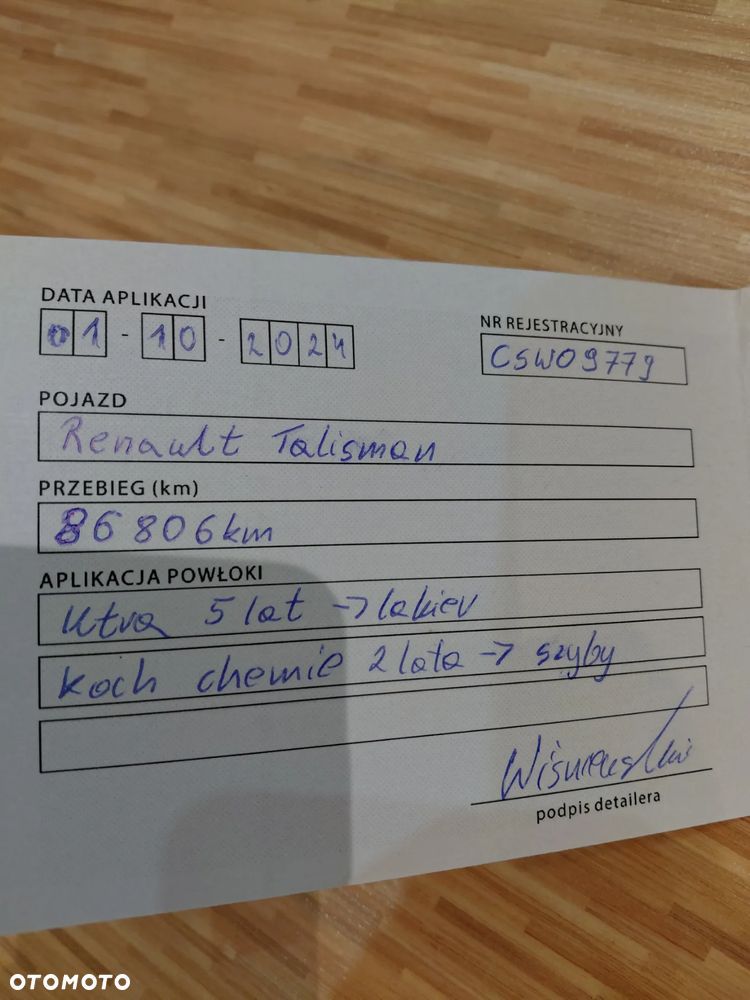 DATA APLIKACJI
01-10-2024
NR REJESTRACYJNY
CSW09779
POJAZD
Renault Talisman
PRZEBIEG (km)
86 806 km
APLIKACJA POWŁOKI
5 lat -> lakier
koch chemie 2 lata -> szyby
Wiśniewski
podpis detailera
OTOMOTO